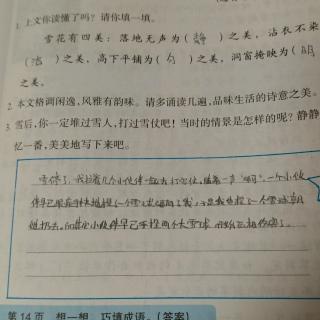 1. 上文你读懂了吗？请你填一填。
雪花有四美：落地无声为（静）之美，沾衣不染
（洁）之美，高下平铺为（匀）之美，洞窗掩映为（明
之美。
2. 本文格调闲逸，风雅有韵味。请多诵读几遍，品味生活的诗意之美。
3. 雪后，你一定堆过雪人，打过雪仗吧！当时的情景是怎样的呢？静静
忆一番，美美地写下来吧。
雪停了，我拉着几个小伙伴一起去打雪仗，随着一声“啊”，一个小伙
伴早已
小伙伴早已手捏两个大雪球
第14页 想一想，巧填成语。（答案）